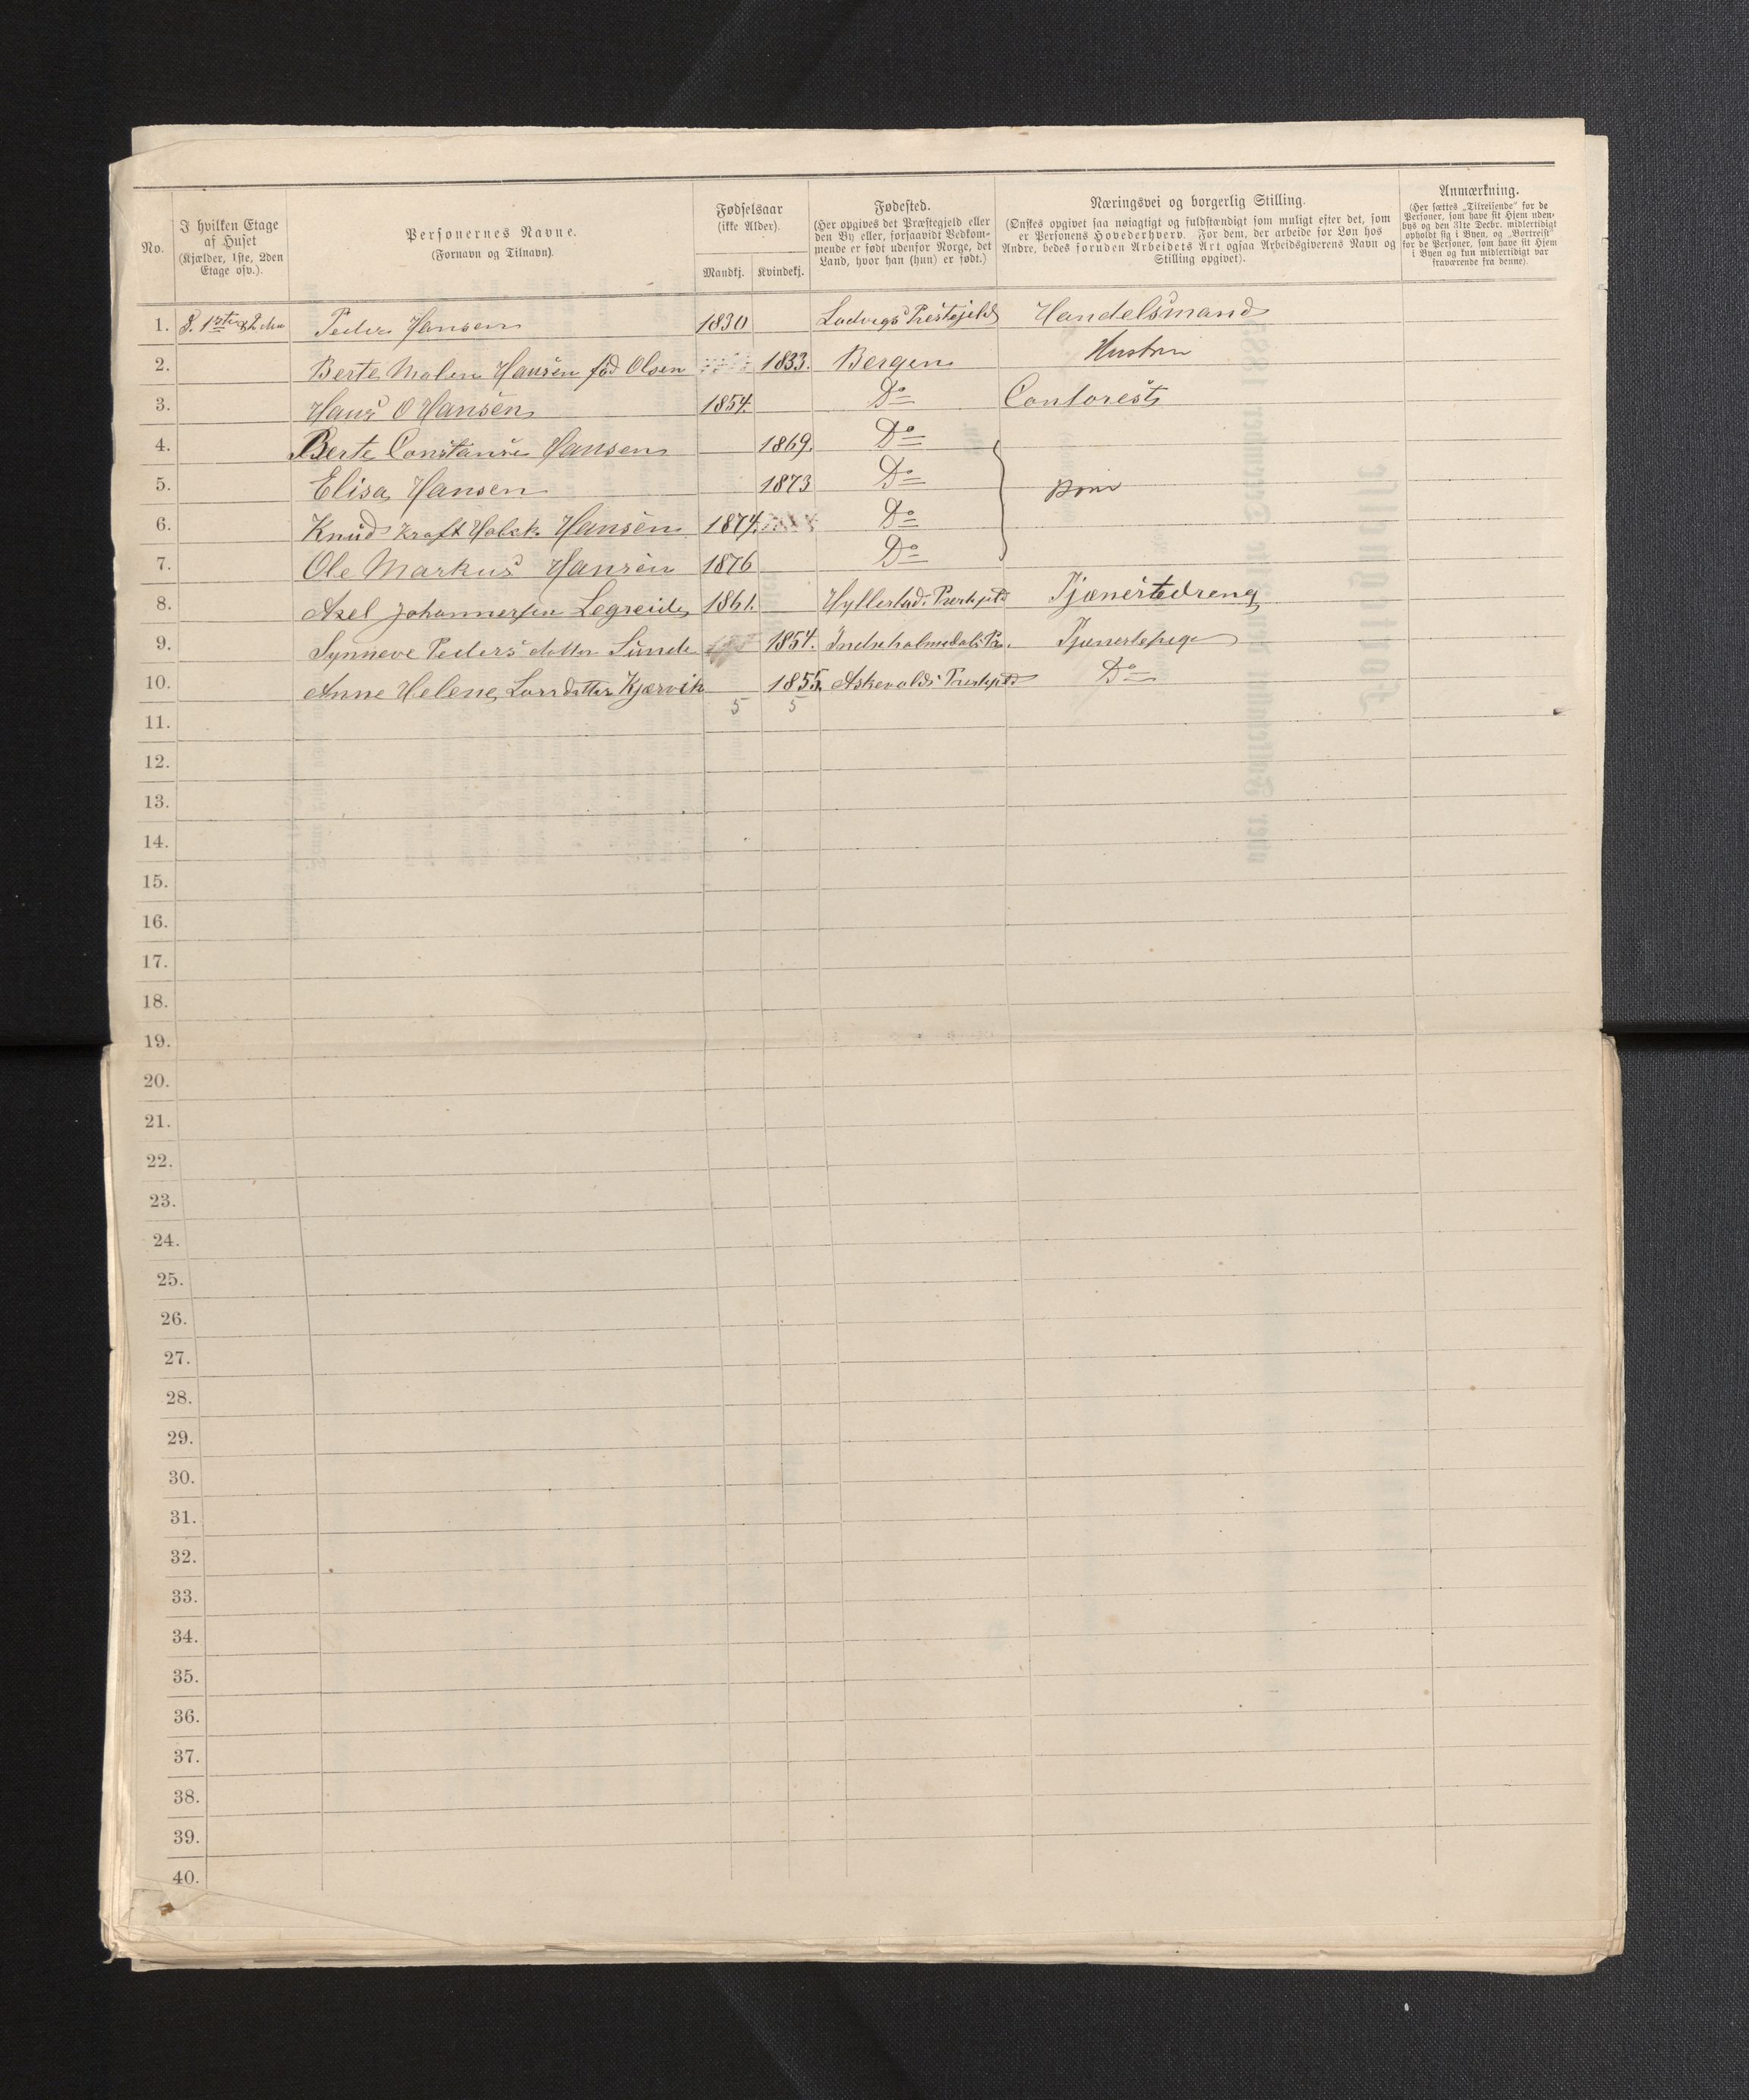 No.
I hvilken Etage
af Huset
(Kjælder, 1ste, 2den
Etage osv.).
Personernes Navne.
(Fornavn og Tilnavn).
Fødselsaar
(ikke Alder).
Mandkj. Kvindekj.
Fødested.
(Her opgives det Præstegjeld eller
den By eller, forsaavidt Vedkom-
mende er født udenfor Norge, det
Land, hvor han (hun) er født.)
Næringsvei og borgerlig Stilling.
(Ønskes opgivet saa nøiagtigt og fuldstændigt som muligt efter det, som
er Personens Hovederhverv. For dem, der arbeide for Løn hos
Andre, bedes foruden Arbeidets Art ogsaa Arbeidsgiverens Navn og
Stilling opgivet).
Anmærkning.
(Her sættes „Tilreisende" for de
Personer, som have sit Hjem uden-
bys og den 31te Decbr. midlertidigt
opholdt sig i Byen, og „Bortreist"
for de Personer, som have sit Hjem
i Byen og kun midlertidigt var
fraværende fra denne).
1. Peder Hansen 1830 Ladvigs Prestejeld Handelsmand
2. Berte Malene Hansen fød Olsen 1833. Bergen Hustru
3. Hans O Hansen 1854. Do Contorest
4. Berte Constanse Hansen 1869. Do
5. Elisa Hansen 1873 Do Børn
6. Knud Kraft Holck Hansen 1874. Do
7. Ole Markus Hansen 1876 Do
8. Axel Johannessen Legreid 1861. Hyllestads Prestejeld Tjenestedreng
9. Synneve Peders datter Sunde 1854. Indreholmedals Pr. Tjenestepige
10. Anne Helene Larsdatter Kjærvik 1855. Askevolds Prestejeld Do
5 5
11.
12.
13.
14.
15.
16.
17.
18.
19.
20.
21.
22.
23.
24.
25.
26.
27.
28.
29.
30.
31.
32.
33.
34.
35.
36.
37.
38.
39.
40.